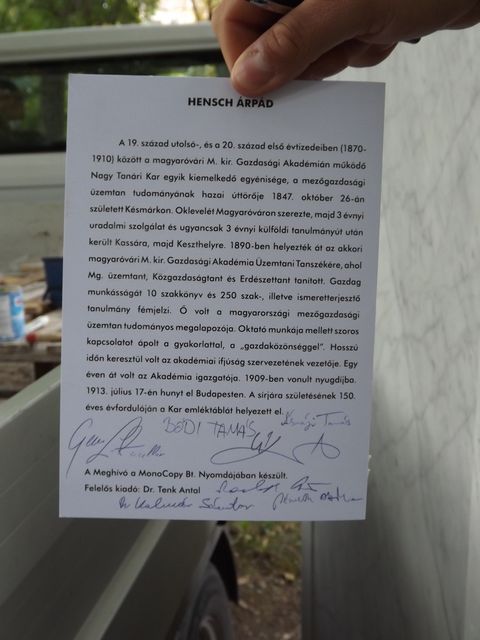 HENSCH ÁRPÁD
A 19. század utolsó-, és a 20. század első évtizedeiben (1870-
1910) között a magyaróvári M. kir. Gazdasági Akadémián működő
Nagy Tanári Kar egyik kiemelkedő egyénisége, a mezőgazdasági
üzemtan tudományának hazai úttörője 1847. október 26-án
született Késmárkon. Oklevelét Magyaróváron szerezte, majd 3 évnyi
uradalmi szolgálat és ugyancsak 3 évnyi külföldi tanulmányút után
került Kassára, majd Keszthelyre. 1890-ben helyezték át az akkori
magyaróvári M. kir. Gazdasági Akadémia Üzemtani Tanszékére, ahol
Mg. üzemtant, Közgazdaságtant és Erdészettant tanított. Gazdag
munkásságát 10 szakkönyv és 250 szak-, illetve ismeretterjesztő
tanulmány fémjelzi. Ő volt a magyarországi mezőgazdasági
üzemtan tudományos megalapozója. Oktató munkája mellett szoros
kapcsolatot ápolt a gyakorlattal, a „gazdaközönséggel". Hosszú
időn keresztül volt az akadémiai ifjúság szervezetének vezetője. Egy
éven át volt az Akadémia igazgatója. 1909-ben vonult nyugdíjba.
1913. július 17-én hunyt el Budapesten. A sírjára születésének 150.
éves évfordulóján a Kar emléktáblát helyezett el.
BÓDI TAMÁS
Tamás
A Meghívó a MonoCopy Bt. Nyomdájában készült.
Felelős kiadó: Dr. Tenk Antal
Dr Kalmár Sándor